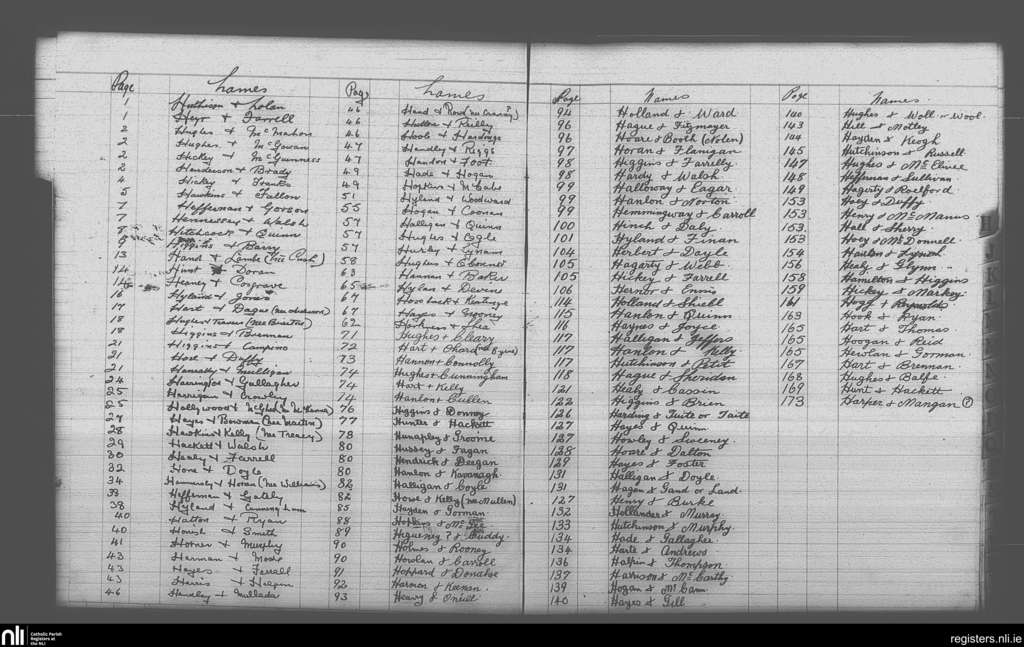 Page Names
1 Hutchison & Nolan
1 Heyr & Farrell
2 Hughes & McMahon
2 Hughes & McGowan
2 Hickey & McGuinness
2 Henderson & Brady
4 Hickey & Franks
5 Hawkins & Fallon
7 Heffernan & Gordon
7 Hennessey & Walsh
8 Hitchcock & Quinn
9 Higgins & Barry
13 Hand & Lambe
14 Hurst & Doran
14 Heaney & Cosgrave
16 Hyland & Jones
17 Hart & Dagne
18 Hughes & Travers
18 Higgins & Brennan
21 Higgins & Campion
21 Hore & Duffy
21 Hanratty & Mulligan
24 Harrington & Gallagher
25 Harrigan & Crowley
25 Hollywood &
27 Hayes & Bowman (née Martin)
28 Hawkins & Kelly (née Treacy)
29 Hackett & Walsh
30 Healy & Farrell
32 Hone & Doyle
34 & Horan (née Williams)
33 Heffernan & Gately
38 Hyland & Cunningham
40 Hatton & Ryan
40 Housh & Smith
41 Horner & Murphy
43 Harman & Moore
43 Hayes & Farrell
43 Harris & Halpin
46 Hendley & Mullady
Page Names
46 Head & Rose
46 Hutton & Reilly
46 Hoole & Hardinge
47 Handley & Riggs
47 Hanlon & Foot
49 Hade & Hogan
49 Hopkins & McCabe
51 Hyland & Woodward
55 Hogan & Coonan
57 Halligan & Quinn
57 Hughes & Ogle
57 Hurley & Lynam
58 Hughes & O'Connor
63 Hannan & Baker
65 Hylan & Devine
67
67 Hayes & Mooney
62 Harkness & Shea
71 Hughes & Cleary
72 Hart & Chard
73 Hannon & Connolly
74 Hughes & Cunningham
74 Hart & Kelly
14 Hanlon & Cullen
76 Higgins & Denroy
77 Hunter & Hackett
78 Hunapley & Groome
80 Hussey & Fagan
80 Hendrick & Deegan
80 Hanlon & Kavanagh
82 Halligan & Coyle
82 Howe & Kelly (née Mullen)
85 Hayden & Gorman
88 Hopkins & McGee
89 Hegueney? & Cuddy
90 Holmes & Rooney
90 Howlan & Carroll
91 Hoppard & Donahoe
92 Harmon & Keenan
93 Heavy & O'Neill
Page Names
94 Holland & Ward
96 Hague & Fitzmayer
96 Hoare & Booth (Nolan)
97 Horan & Flanigan
98 Higgins & Farrelly
98 Hardy & Walsh
99 Halloway & Eagar
99 Hanlon & Norton
99 Hemmingway & Carroll
100 Hinch & Daly
101 Hyland & Finan
104 Herbert & Doyle
105 Hagarty & Webb
105 Hickey & Farrell
106 Hernor & Ennis
114 Holland & Shiell
115 Hanlon & Quinn
116 Haynes & Joyce
117 Halligan & Jeffers
117 Hanlon & Kelly
117 Hutchinson & Petit
118 Hague & Sheridan
121 Healy & Cassin
122 Higgins & Brien
126 Harding & Tuite or Taite
127 Hayes & Quinn
127 Howley & Sweeney
128 Hoare & Dalton
129 Hayes & Foster
131 Halligan & Doyle
131 Hagan & Gand or Land
127 Henry & Burke
132 Hollander & Murray
133 Hutchinson & Murphy
134 Hade & Gallagher
134 Harte & Andrews
136 Halpin & Thompson
137 Harrison & McCarthy
139 Hogan & McCann
140 Hayes & Gill
Page Names
140 Hughes & Woll or Wool
143 Hill & Motley
144 Hayden & Keogh
145 Hutchinson & Russell
147 Hughes & McElwee
148 Heffernan & Sullivan
149 Hagerty & Raelford
153 Hoey & Duffy
153 Henry & McManus
153 Hall & Sherry
153 Hoey & McDonnell
154 Hanlon & Lynch
156 Healy & Flynn
158 Hamilton & Higgins
159 Hickey & Markey
161 Hogg & Reynolds
163 Hook & Ryan
165 Hart & Thomas
165 Hoogan & Reid
165 Hewtan & Gorman
167 Hart & Brennan
168 Hughes & Balfe
169 Hunt & Hackett
173 Harper & Mangan ?
nli Catholic Parish Registers at the NLI
registers.nli.ie